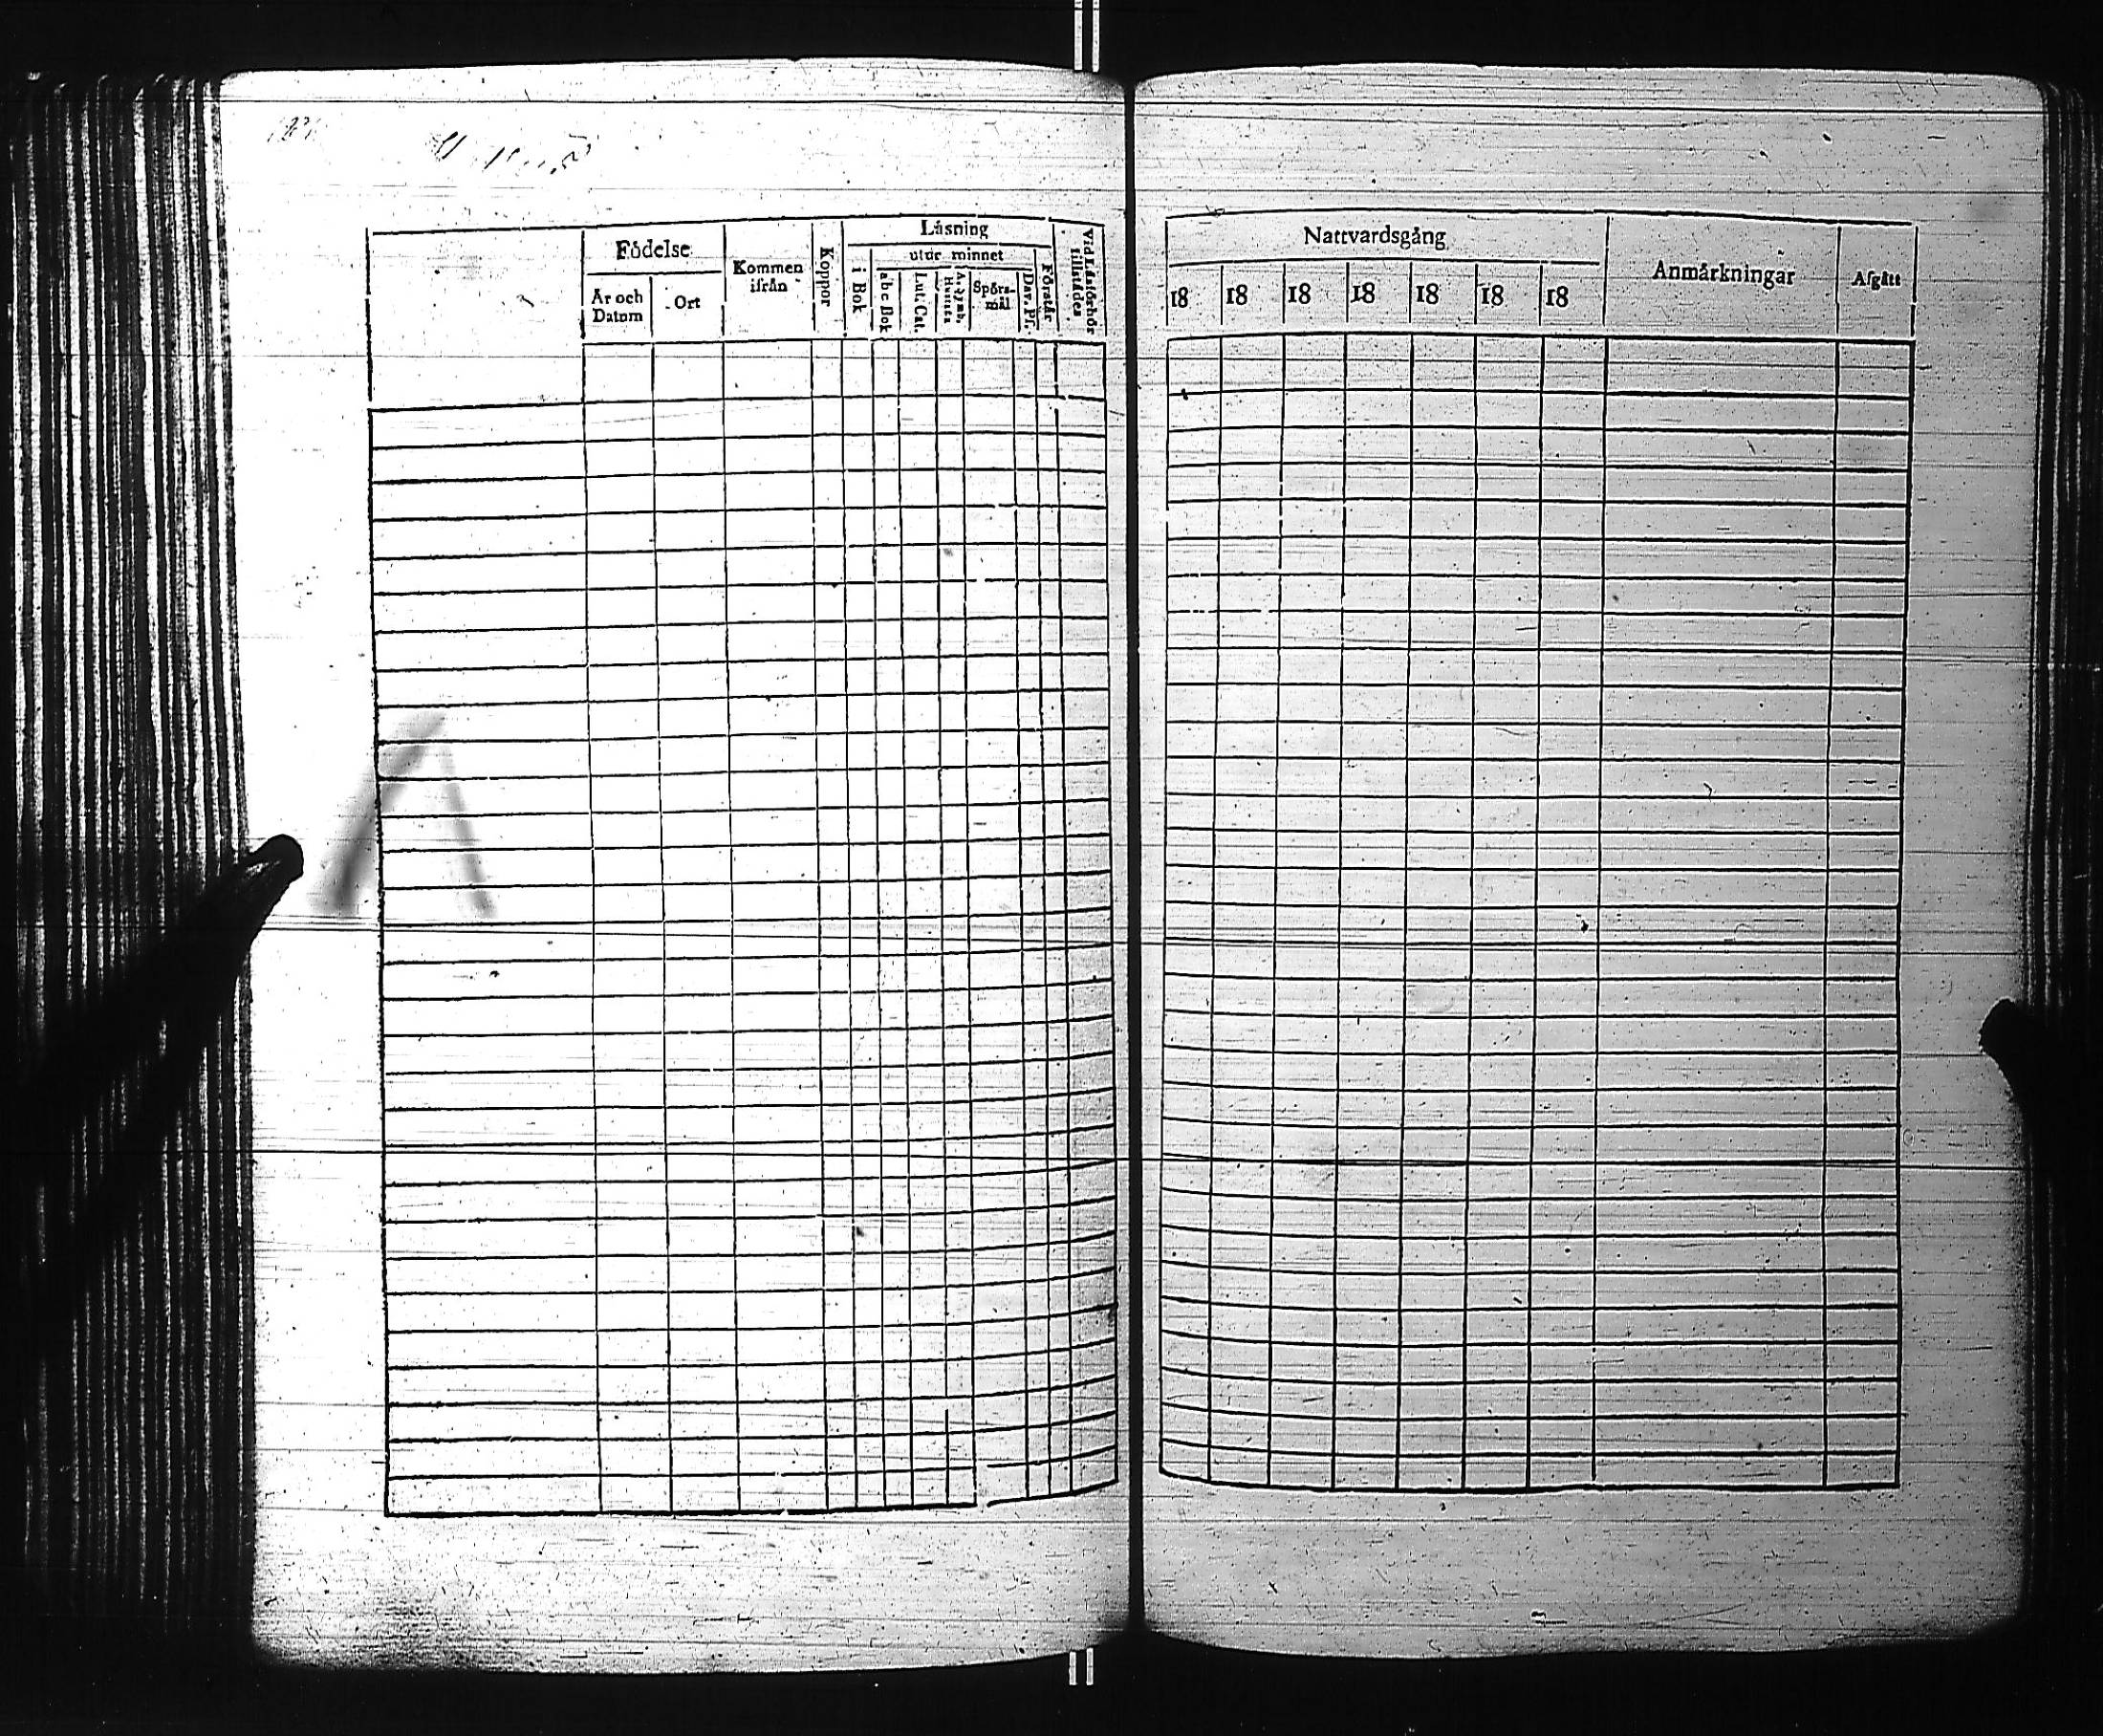 Födelse
År och Datum
Ort
Kommen ifrån
Koppor
Läsning
i Bok
utur minnet
abc Bok
Lut. Cat.
Spörs-
mål
Dav. Ps.
Förstår
Vid Läsförhör
tillstädes
Nattvardsgång
18 18 18 18 18 18 18
Anmärkningar
Afgått